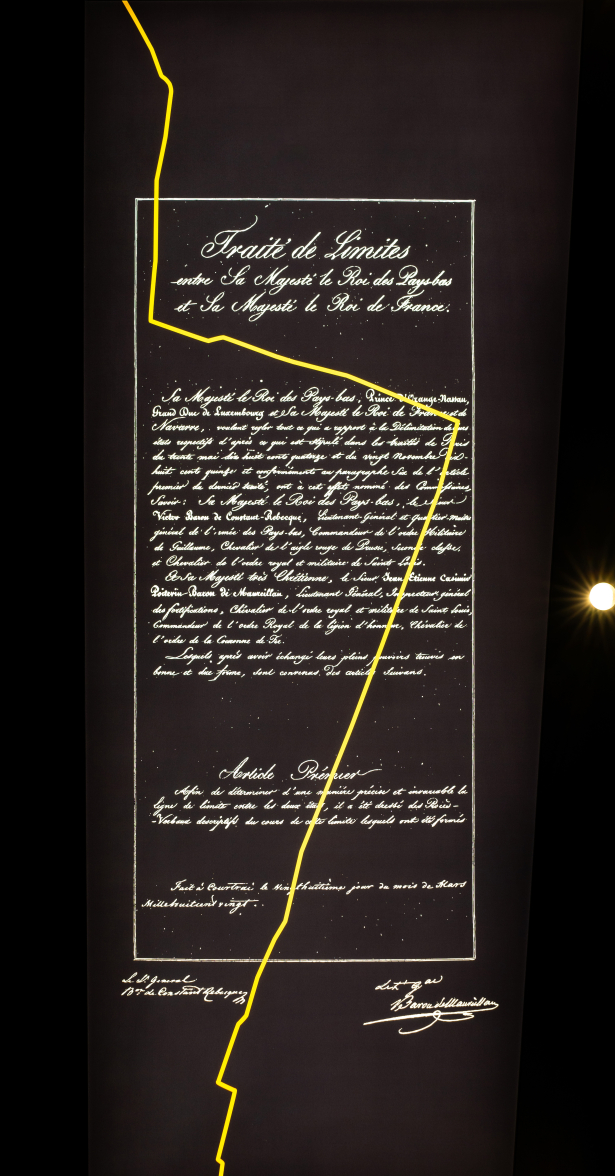 Traité de Limites
entre Sa Majesté le Roi des Pays-bas
et Sa Majesté le Roi de France.
Sa Majesté le Roi des Pays-bas, Prince d'Orange-Nassau,
Grand Duc de Luxembourg et Sa Majesté le Roi de France et de
Navarre, voulant régler tout ce qui a rapport à la Délimitation de
états respectifs d'après ce qui est stipulé dans les traités de Paris
du trente mai dix huit cent quatorze et du vingt Novembre
huit cent quinze et conformément au paragraphe Six de l'article
premier du dernier traité, ont à cet effet nommé des Commissaires,
Savoir : Sa Majesté le Roi des Pays-bas, le Sieur
Victor Baron de Constant-Rebecque, Lieutenant-Général et Quartier maitre
général de l'armée des Pays-Bas, Commandeur de l'ordre Militaire
de Guillaume, Chevalier de l'aigle rouge de Prusse, Seconde classe,
et Chevalier de l'ordre royal et militaire de Saint Louis.
Et Sa Majesté très Chrétienne, le Sieur Jean Etienne Casimir
Poitevin Baron de Maureillan, Lieutenant Général, Inspecteur général
des fortifications, Chévalier de l'ordre royal et militaire de Saint Louis,
Commandeur de l'ordre Royal de la légion d'honneur, Chévalier de
l'ordre de la Couronne de Fer.
Lesquels, après avoir échangé leurs pleins pouvoirs trouvés en
bonne et due forme, sont convenus des articles Suivans.
Article Prémier
Afin de déterminer d'une manière précise et invariable la
ligne de limite entre les deux états, il a été dressé des Procès-
-Verbaux descriptifs du cours de cette limite lesquels ont été formés
Fait à Courtrai le vingthuitième jour du mois de Mars
Millehuitcent vingt.
Le Lt. General
Bon de Constant Rebecque
Baron de Maureillan